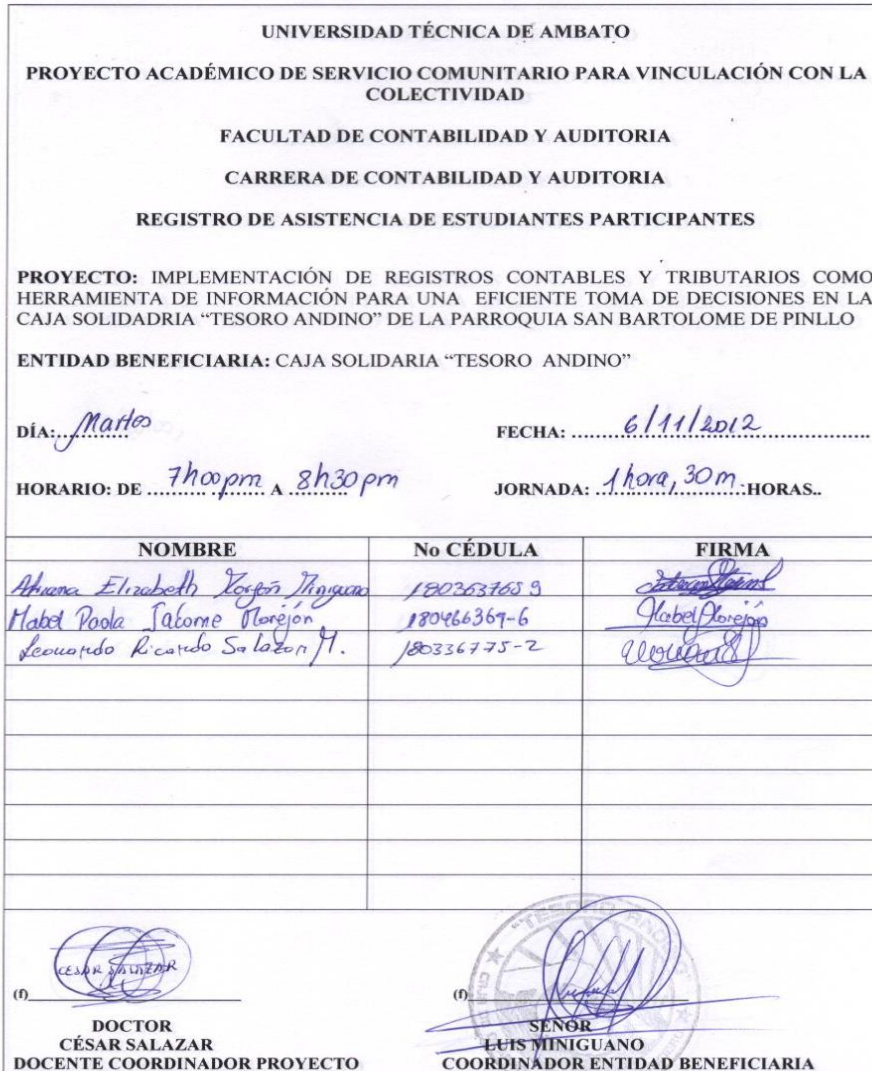 UNIVERSIDAD TÉCNICA DE AMBATO
PROYECTO ACADÉMICO DE SERVICIO COMUNITARIO PARA VINCULACIÓN CON LA
COLECTIVIDAD
FACULTAD DE CONTABILIDAD Y AUDITORIA
CARRERA DE CONTABILIDAD Y AUDITORIA
REGISTRO DE ASISTENCIA DE ESTUDIANTES PARTICIPANTES
PROYECTO: IMPLEMENTACIÓN DE REGISTROS CONTABLES Y TRIBUTARIOS COMO
HERRAMIENTA DE INFORMACIÓN PARA UNA EFICIENTE TOMA DE DECISIONES EN LA
CAJA SOLIDADRIA “TESORO ANDINO” DE LA PARROQUIA SAN BARTOLOME DE PINLLO
ENTIDAD BENEFICIARIA: CAJA SOLIDARIA “TESORO ANDINO”
DÍA: Martes FECHA: 6/11/2012
HORARIO: DE 7h00pm A 8h30pm JORNADA: 1hora, 30m. HORAS..
NOMBRE No CÉDULA FIRMA
Elizabeth 180363765 9
Mabel Paola Jácome Morejón 180466369-6 Mabel Morejón
Leonardo Ricardo Salazar M. 180336775-2
CESAR SALAZAR "TESORO ANDINO"
(f) (f)
DOCTOR SEÑOR
CÉSAR SALAZAR LUIS MINIGUANO
DOCENTE COORDINADOR PROYECTO COORDINADOR ENTIDAD BENEFICIARIA